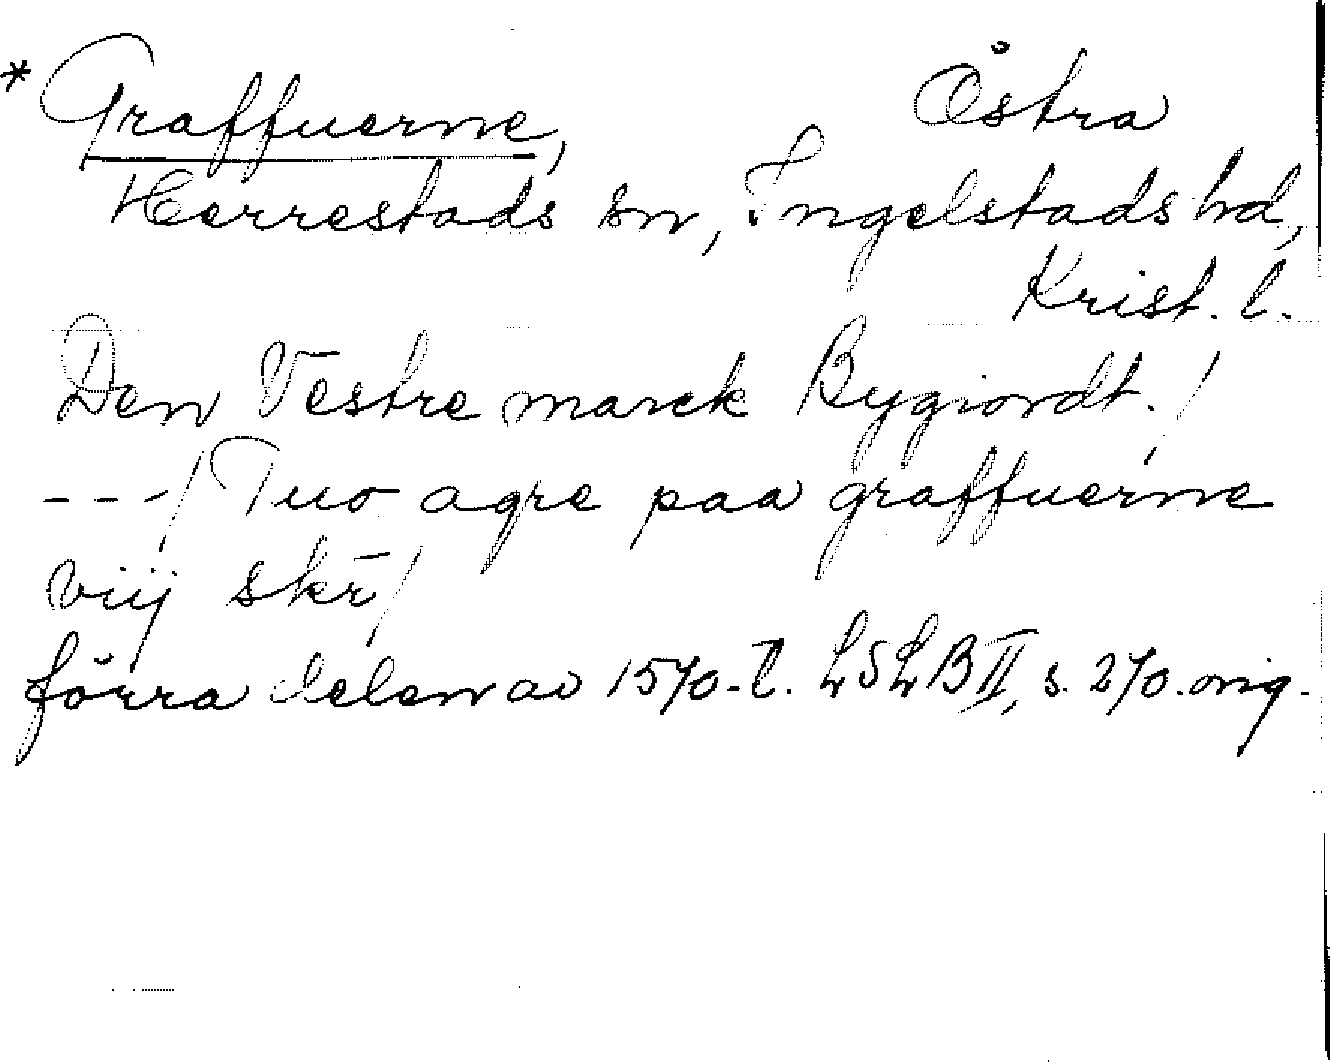 * Graffuerne, Östra
Herrestads sn, Ingelstads hd,
Krist. l.
Den Vestre marck Bygiordt. /
---/ Tuo agre paa graffuerne
viij skr̄ /
förra delen av 1570-t. LSLB II, s. 270. orig.